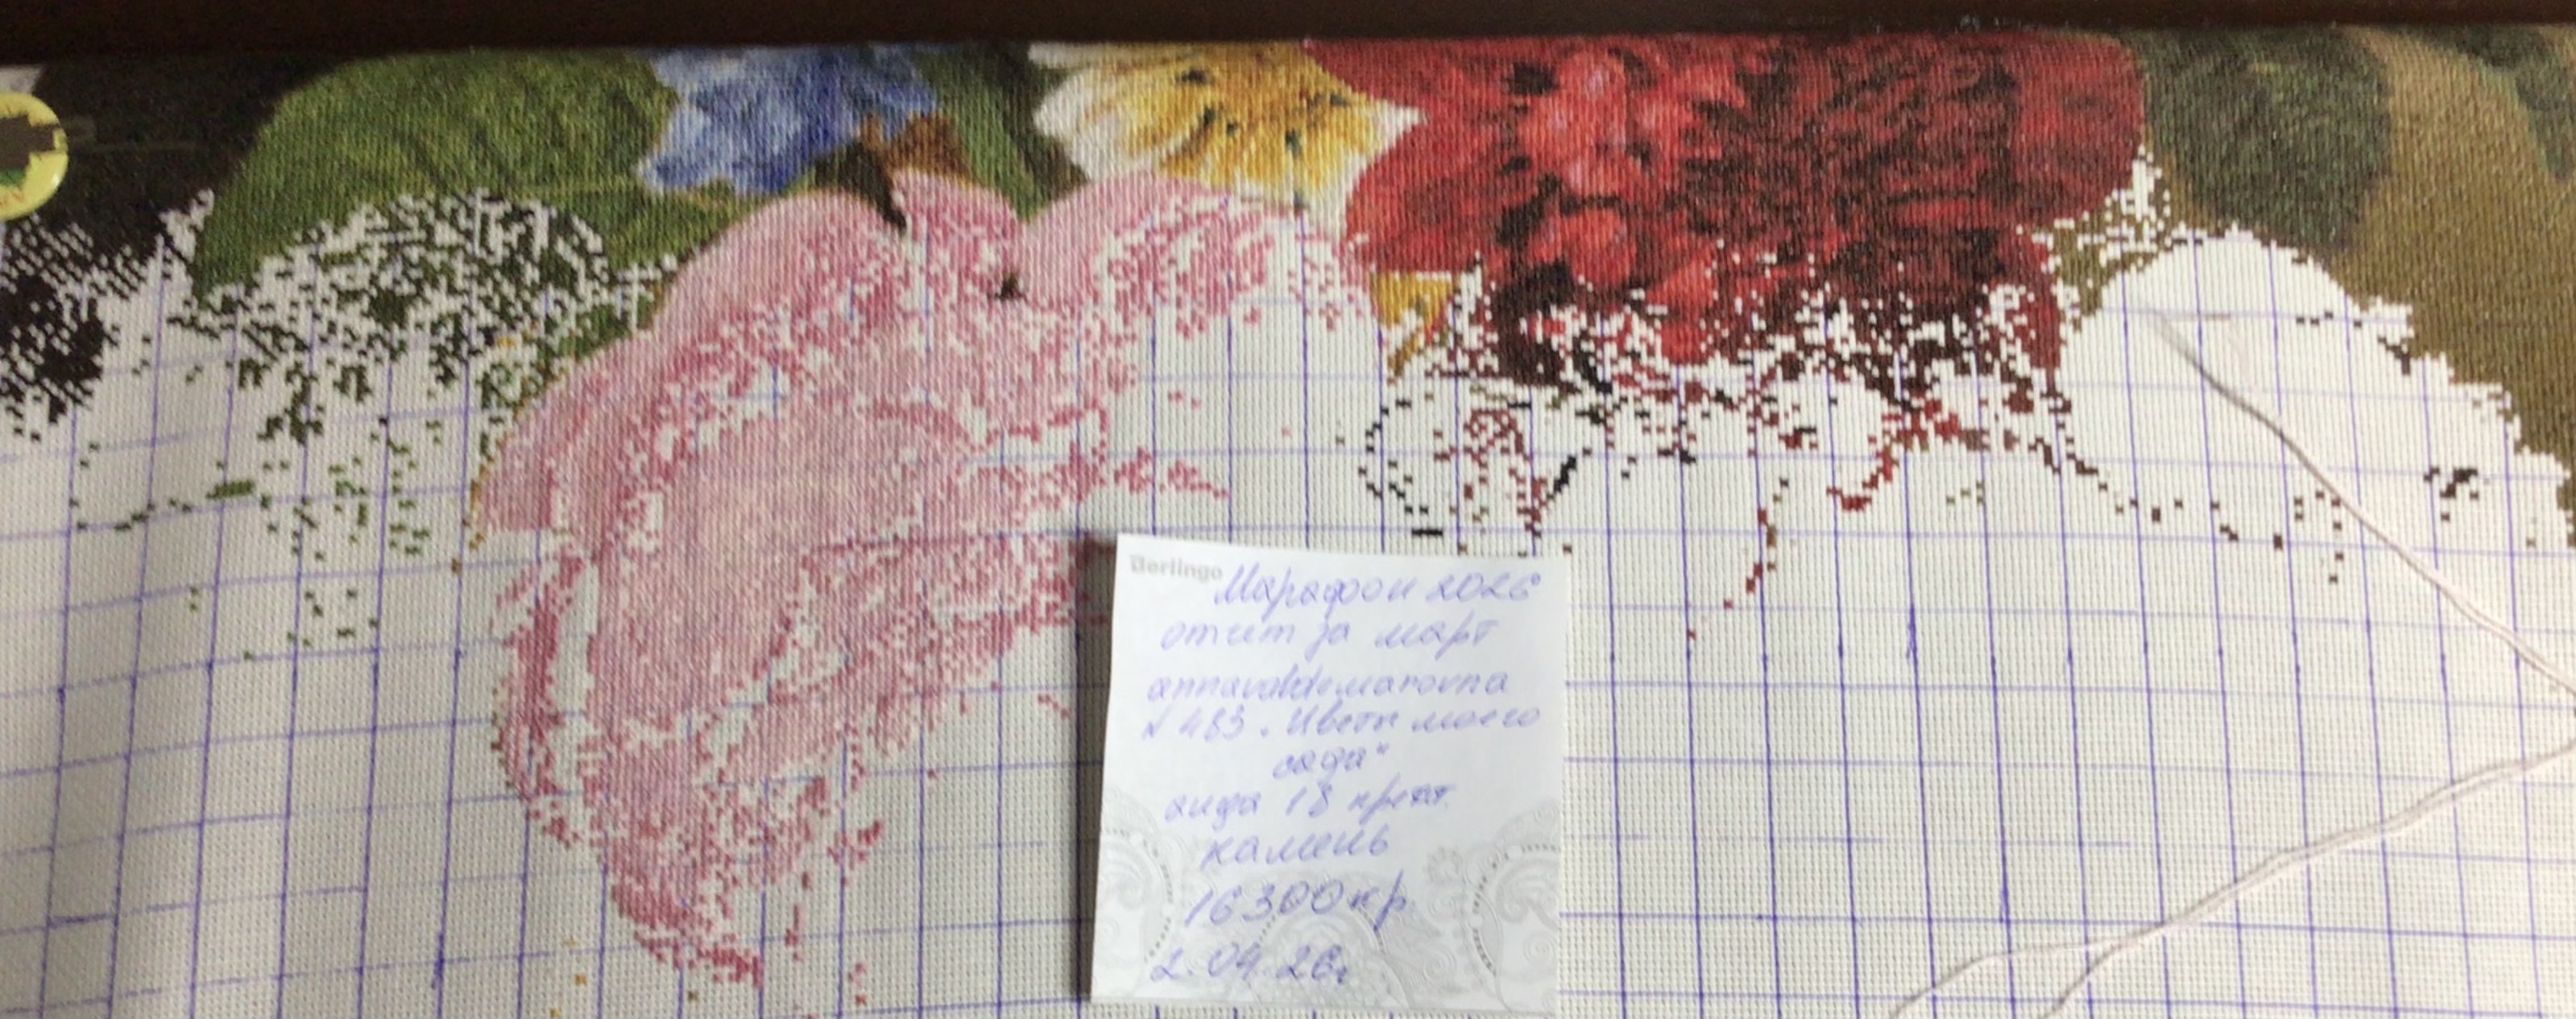 Berlingo
Марафон 2026
отчет за март
annavaldemarovna
№ 483 "Цветы моего
сада"
аида 18 крест
камень
16300 кр.
2.04.26г